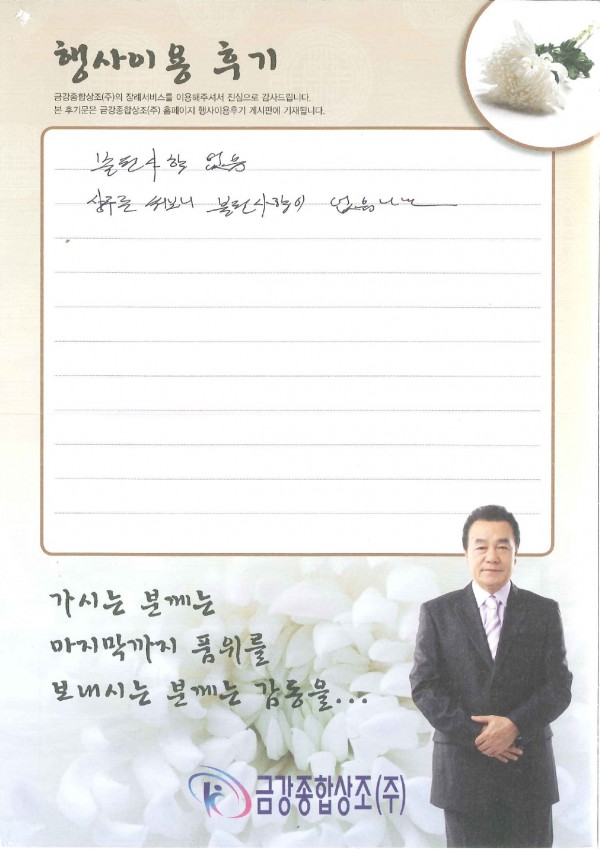 행사이용 후기
금강종합상조(주)의 장례서비스를 이용해주셔서 진심으로 감사드립니다.
본 후기문은 금강종합상조(주) 홈페이지 행사이용후기 게시판에 기재됩니다.
불편사항 없음
상주를 써보니 불편사항이 없음니다
가시는 분께는
마지막까지 품위를
보내시는 분께는 감동을...
금강종합상조(주)